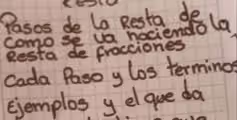 Pasos de la Resta de
como se va haciendo la
Resta de fracciones
Cada Paso y los terminos
Ejemplos y el que da